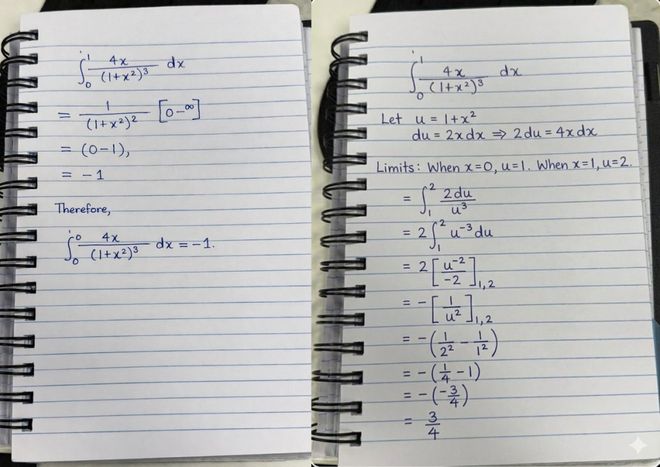 ∫₀¹ 4x/(1+x²)³ dx
= 1/(1+x²)² [0-∞]
= (0-1),
= -1
Therefore,
∫₀⁰ 4x/(1+x²)³ dx = -1.
∫₀¹ 4x/(1+x²)³ dx
Let u = 1+x²
du = 2x dx ⇒ 2 du = 4x dx
Limits: When x=0, u=1. When x=1, u=2.
= ∫₁² 2du/u³
= 2∫₁² u⁻³ du
= 2[u⁻²/-2]₁,₂
= -[1/u²]₁,₂
= -(1/2² - 1/1²)
= -(1/4 - 1)
= -(-3/4)
= 3/4